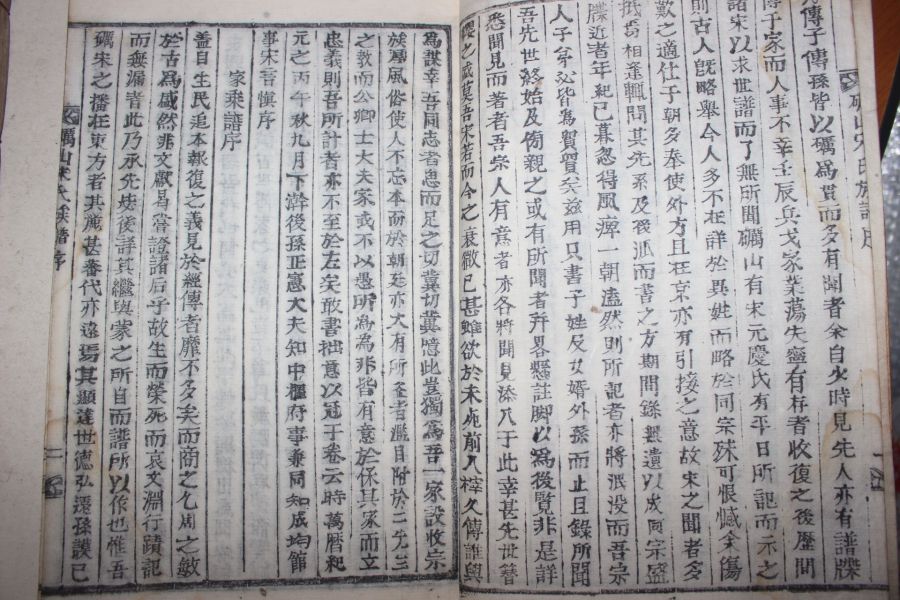 礪山宋氏族譜序 一
傳子傳孫皆以礪爲貫而多有聞者余自少時見先人亦有譜牒
傳子家而人事不幸壬辰兵戈家業蕩失靈有存者收復之後歷問
諸宋以求世譜而了無所聞礪山有宋元慶氏有平日所記而示之
則古人旣略舉今人多不在詳於異姓而略於同宗殊可恨憾余傷
歎之適仕于朝多奉使外方且在京亦有引接之意故宋之聞者多
相逢輒問其先系及後派而書之方期間錄無遺以成同宗盛
牒近者年紀已暮忽得風痺一朝溘然則所記者亦將泯没而吾宗
人子弟皆爲貿貿矣玆用只書子姓及女婿外孫而止且錄所聞
吾先世終始及傍親之或有所聞者幷畧懸註脚以爲後覽非是詳
悉聞見而著者吾宗人有意者亦各將聞見添入于此幸甚先世簪
纓之盛莫吾宋若而今之衰微已甚雖欲於未死前入梓久傳誰與
爲謀幸吾同志者思而足之切冀切冀噫此豈獨爲吾一家設收宗
族厚風俗使人不忘本而於朝廷亦大有所益者濫自附於二允三
之敎而公卿士大夫家或不以愚所爲爲非皆有意於保其家而立
忠義則吾所計者亦不至於左矣敢書拙意以冠于卷云時萬曆紀
元之丙午秋九月下澣後孫正憲大夫知中樞府事兼同知成均館
事宋言愼序
家乘譜序
蓋自生民追本報復之義見於經傳者靡不多矣而商之乞周之敏
於古爲盛然非文獻曷嘗證諸后乎故生而榮死而哀文淵行蹟記
而無漏者此乃承先後詳其繼與蒙之所自而譜所以作也惟吾
礪宋之播在東方者其麗甚蕃代亦遠焉其顯達世德弘遷孫謨已
礪山宋氏族譜序 二